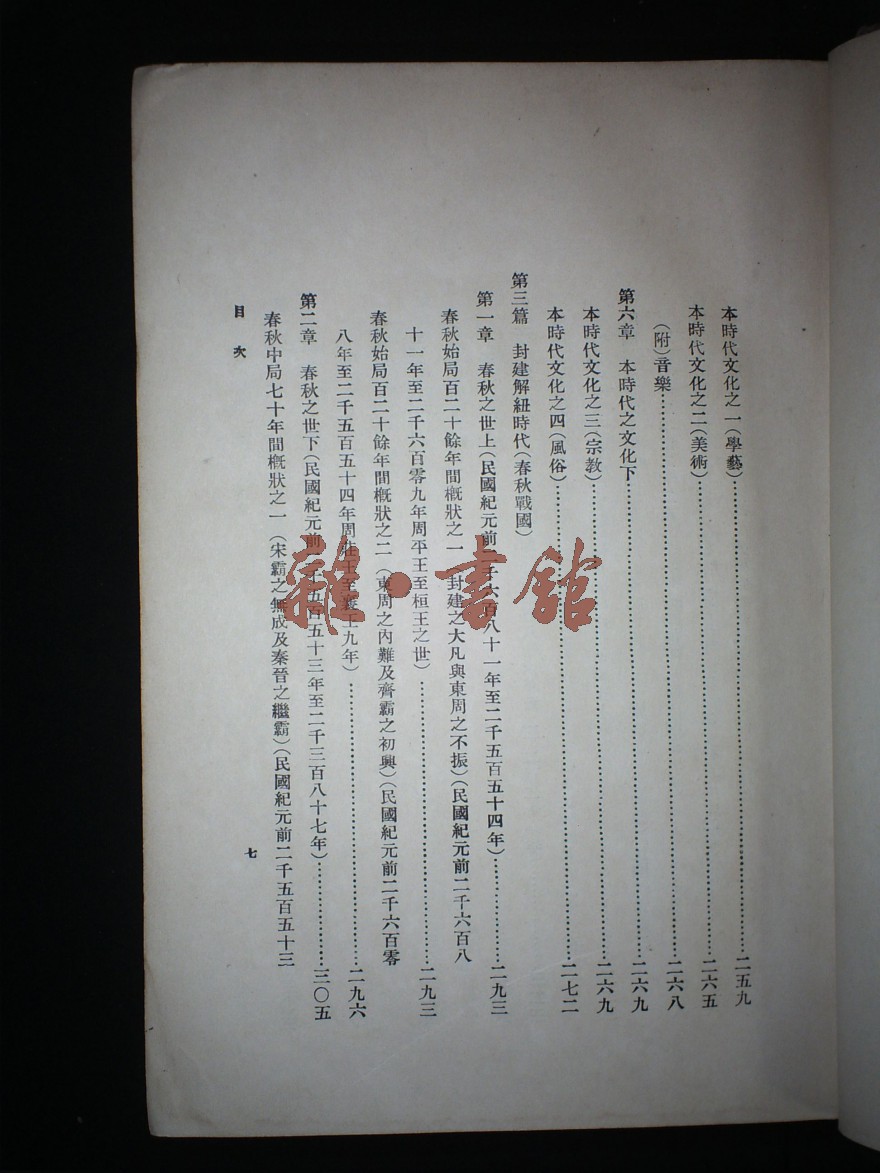 本時代文化之一(學藝)…………二五九
本時代文化之二(美術)…………二六五
(附)音樂…………二六八
第六章 本時代之文化下…………二六九
本時代文化之三(宗教)…………二六九
本時代文化之四(風俗)…………二七二
第三篇 封建解紐時代(春秋戰國)
第一章 春秋之世上(民國紀元前二千六百八十一年至二千五百五十四年)…………二九三
春秋始局百二十餘年間概狀之一(封建之大凡與東周之不振)(民國紀元前二千六百八
十一年至二千六百零九年周平王至桓王之世)…………二九三
春秋始局百二十餘年間概狀之二(東周之內難及齊霸之初興)(民國紀元前二千六百零
八年至二千五百五十四年周莊王至襄王九年)…………二九六
第二章 春秋之世下(民國紀元前二千五百五十三年至二千三百八十七年)…………三〇五
春秋中局七十年間概狀之一(宋霸之無成及秦晉之繼霸)(民國紀元前二千五百五十三
目次
七
雜·書館